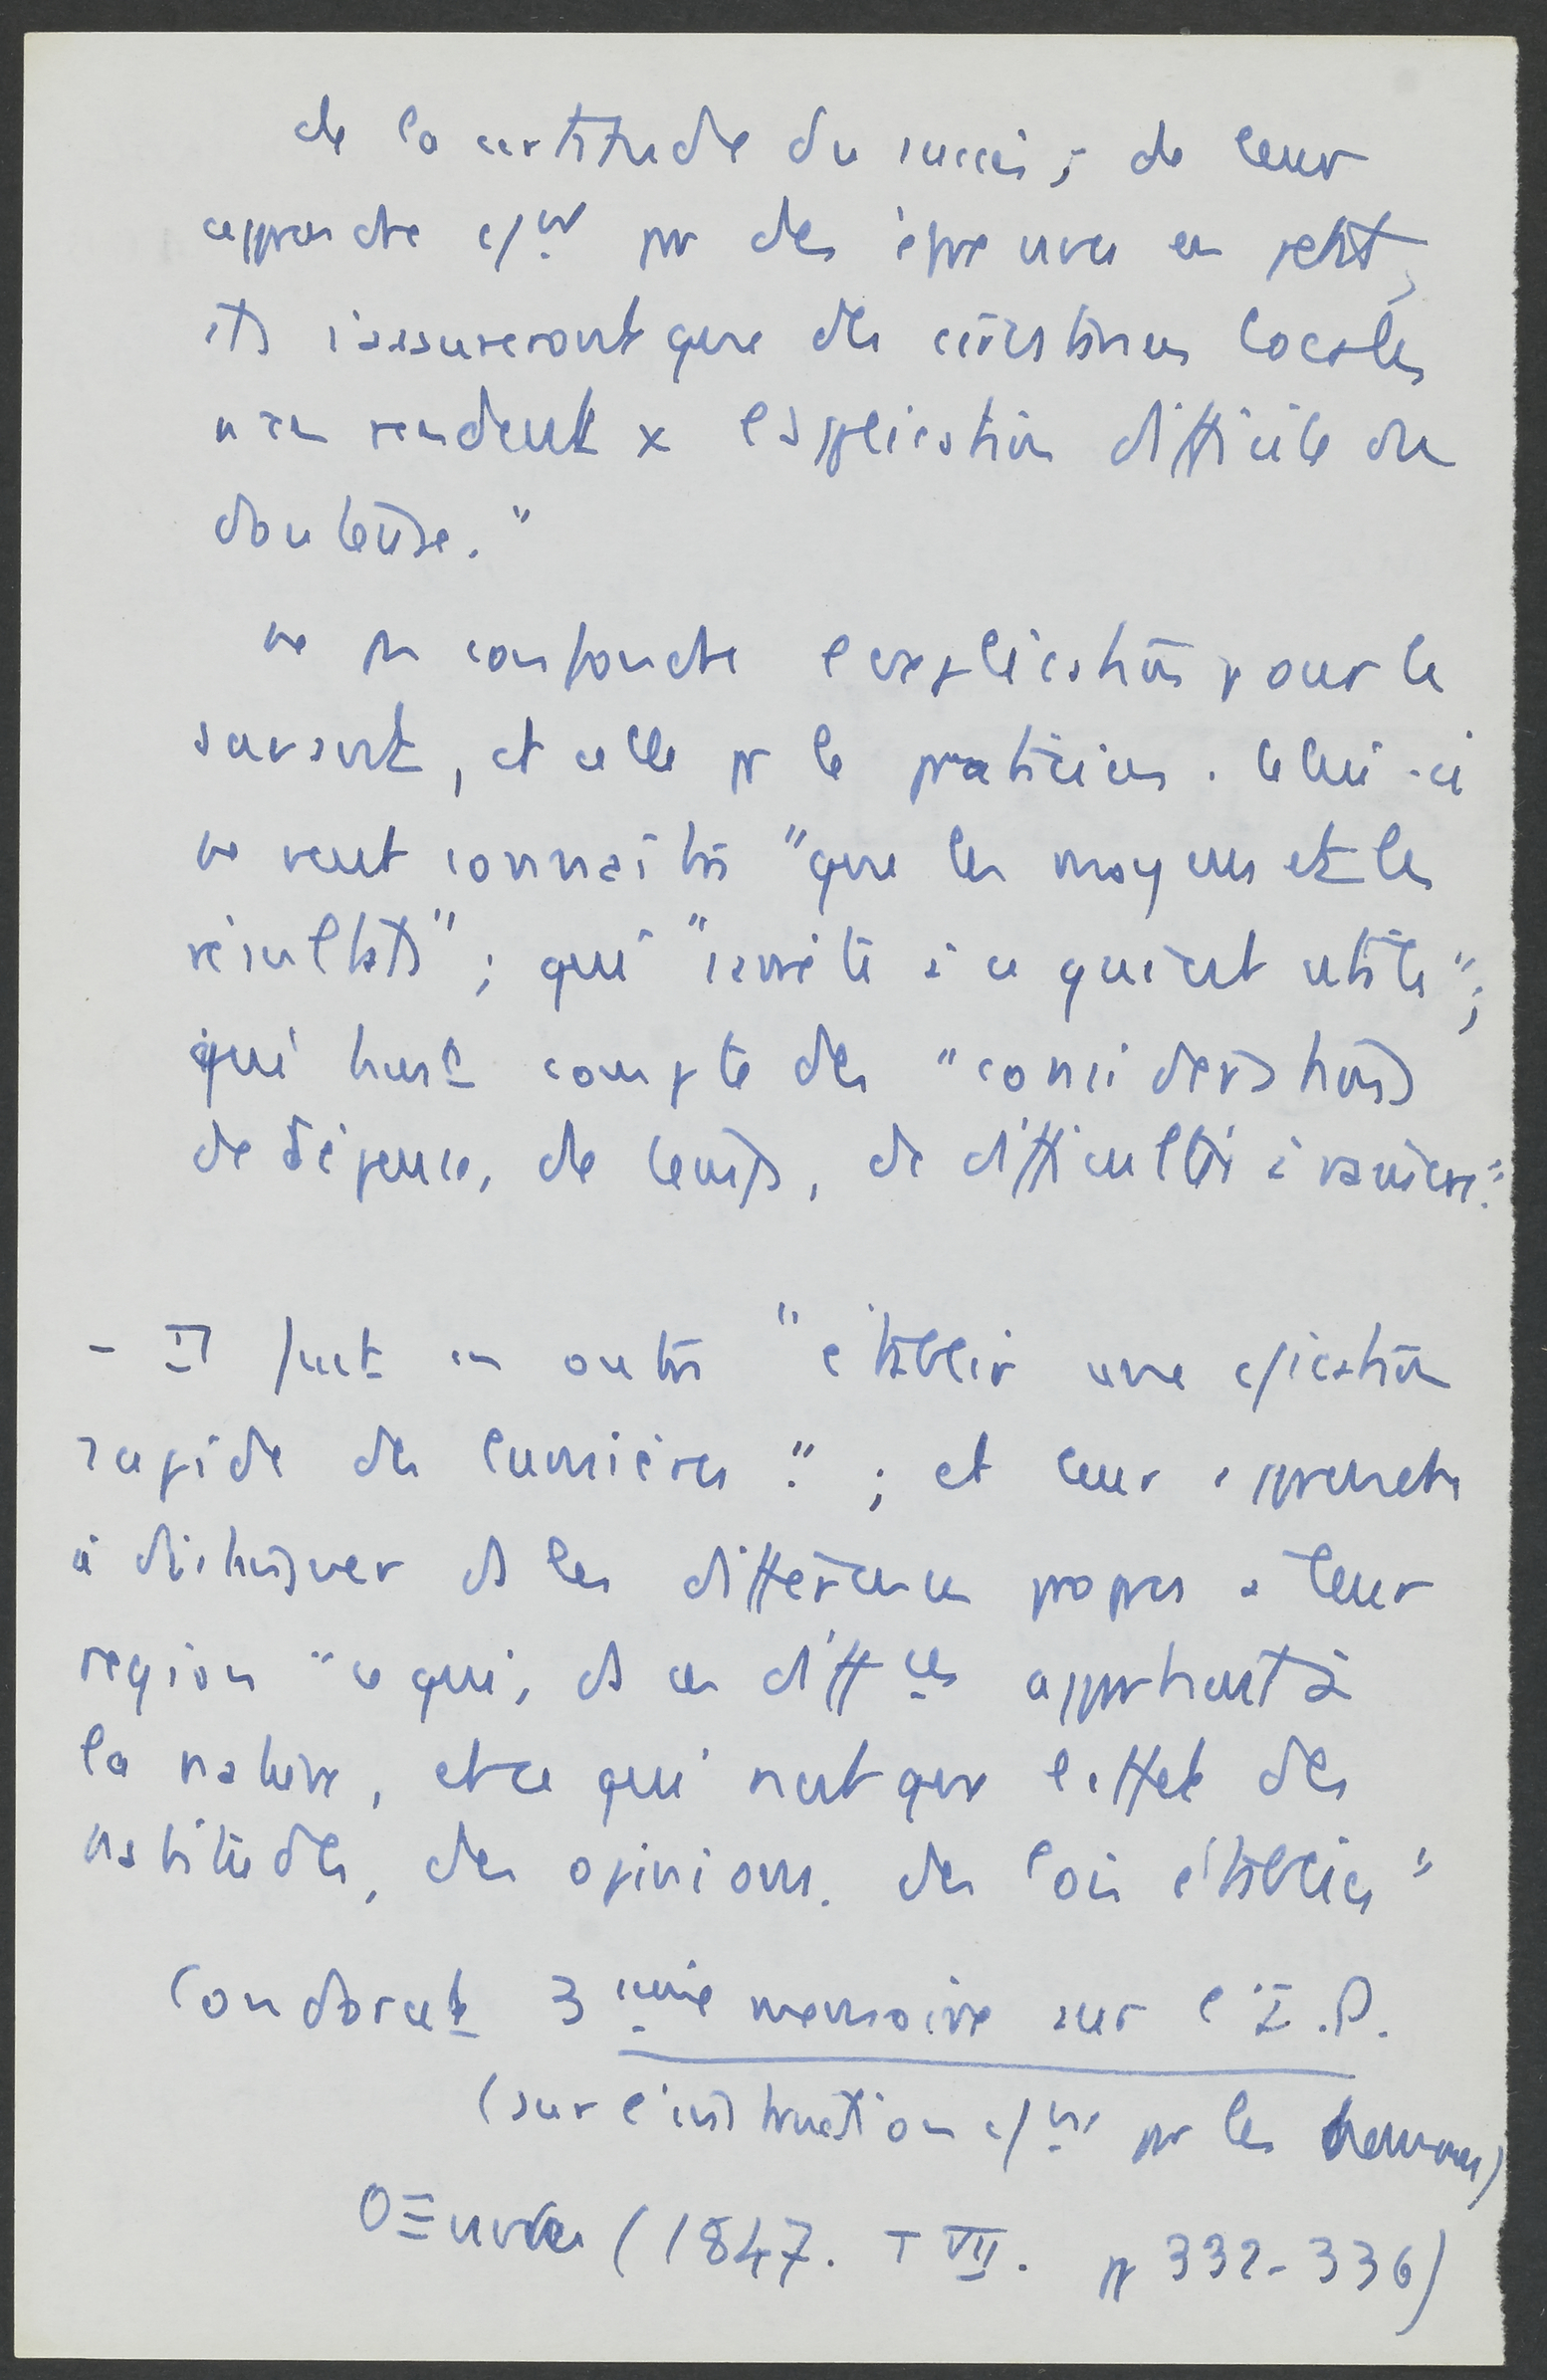 de la certitude du succès ; de leur
apprendre c/ᵗ par des épreuves en petit,
ils s'assureront que des circstances locales
n'en rendent x l'application difficile ou
douteuse."
ne pas confondre l'explication pour le
savant, et celle pr le praticien. Celui-ci
ne veut connaître "que les moyens et les
résultats" ; qui "s'arrête à ce qui est utile" ;
qui tient compte des "considérations
de dépense, de temps, de difficultés à vaincre."
- Il faut en outre "établir une c/ication
rapide des lumières." ; et leur apprendre
à distinguer ds les différences propres à leur
région "ce qui, ds ces diffces appartient à
la nature, et ce qui n'est que l'effet des
habitudes, des opinions, des lois établies"
Condorcet 3ième memoire sur l'I.P.
(sur l'instruction c/ne pr les hommes)
OEuvres (1847. T VII. p 332-336)